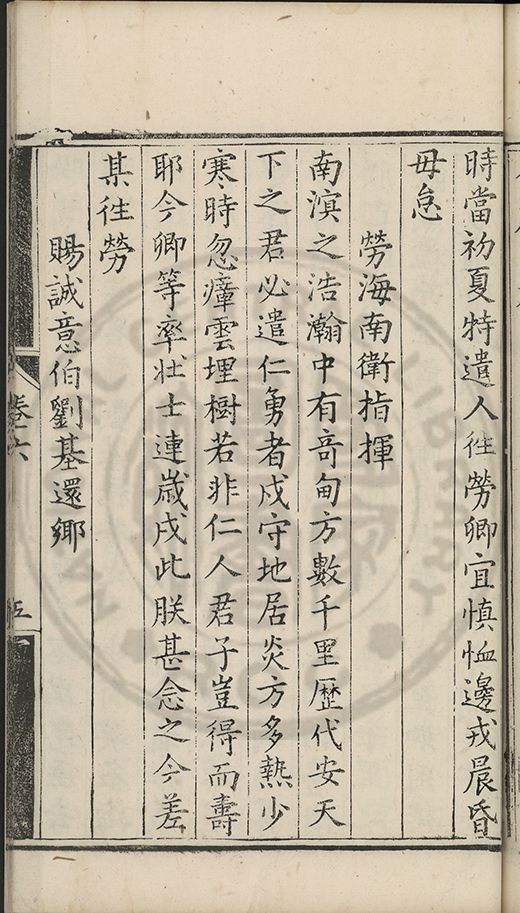 時當初夏特遣人徃勞卿宜慎恤邊戎晨昏
毋怠
勞海南衛指揮
南溟之浩瀚中有竒甸方數千里歷代安天
下之君必遣仁勇者戍守地居炎方多熱少
寒時忽瘴雲埋樹若非仁人君子豈得而壽
耶今卿等率壯士連歲戍此朕甚念之今差
某徃勞
賜誠意伯劉基還鄉
卷六
五